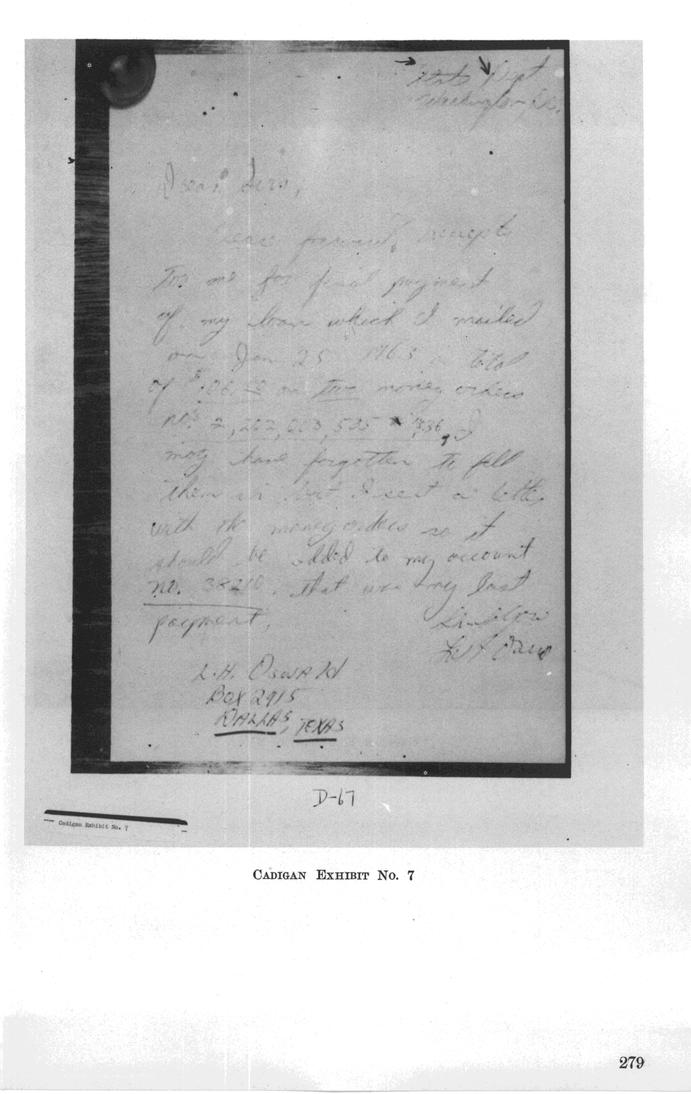 State Dept
Washington, D.C.
Dear Sirs,
forward receipts
to me for final payment
of my loan which I mailed
on Jan 25 1963 a total
of $106.00 on two money orders
I
may have forgotten to fill
them in but I sent a letter
with the money orders so it
should be added to my account
no. 38210. that was my last
payment,
L.H. OSWALD
BOX 2915
DALLAS, TEXAS
D-67
Cadigan Exhibit No. 7
CADIGAN EXHIBIT No. 7
279